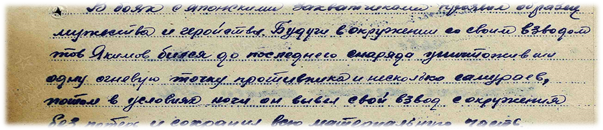 В боях с японскими захватчиками показал образец
мужества и геройства. Будучи в окружении со своим взводом
тов Якимов бился до последнего снаряда уничтожив ни
одну огневую точку противника и несколько самураев,
потом в условиях ночи он вывел свой взвод с окружения
без потерь и сохранил всю материальную часть